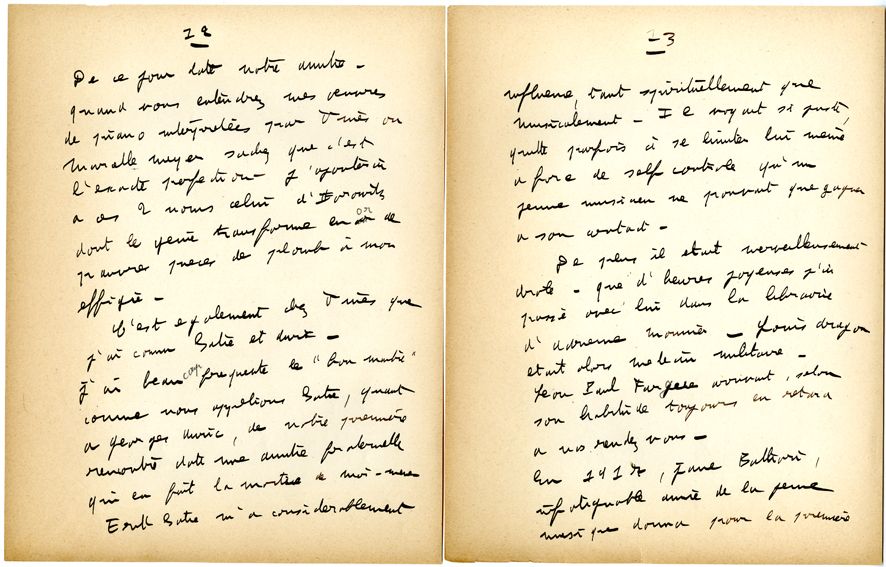 12
De ce jour date notre amitié –
quand vous entendrez mes oeuvres
de piano interpretées par Viñès ou
Marcelle Meyer sachez que c'est
l'exacte perfection – J'ajouterai
a ces 2 noms celui d'Horowitz
dont le genie transforme en or de
pauvres pieces de plomb à mon
effigie –
C'est egalement chez Viñès que
j'ai connu Satie et Auric –
J'ai beaucoup frequenté le "bon maitre"
comme nous appelions Satie, quant
a Georges Auric, de notre première
rencontre date une amitié fraternelle
qui en fait la moitié de moi-meme
Erik Satie m'a considerablement
13
influence, tant spirituellement que
musicalement – Il voyait si juste,
quitte parfois à se limiter lui meme
a force de self controle qu'un
jeune musicien ne pouvait que gagner
a son contact –
De plus il etait merveilleusement
drole – que d'heures joyeuses j'ai
passé avec lui dans la librairie
d'Adrienne Monnier – Louis Aragon
etait alors medecin militaire –
Leon Paul Fargue arrivait, selon
son habitude toujours en retard
a nos rendez vous –
En 1917, Jane Bathori,
infatiguable amie de la jeune
musique donna pour la première